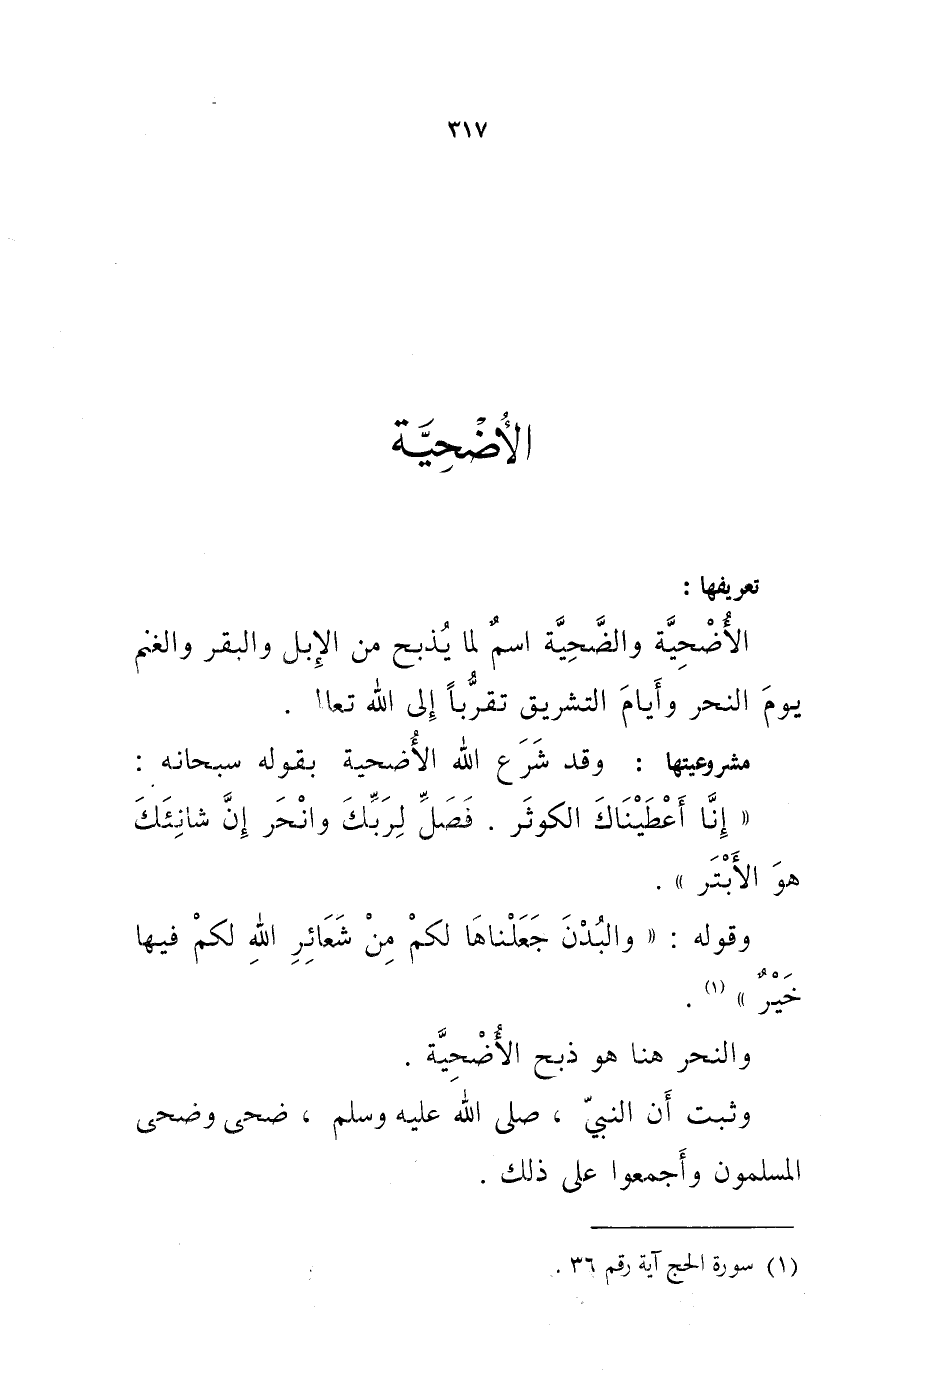 ٣١٧
الأُضْحِيَّة
تعريفها :
الأُضْحِيَّة والضَّحِيَّة اسمٌ لما يُذبح من الإِبل والبقر والغنم
يومَ النحر وأَيامَ التشريق تقرُّباً إِلى الله تعالى .
مشروعيتها : وقد شَرَع الله الأُضحية بقوله سبحانه :
« إِنَّا أَعْطَيْنَاكَ الكوثَر . فَصَلِّ لِرَبِّكَ وانْحَر إِنَّ شانِئَكَ
هوَ الأَبْتَر » .
وقوله : « والبُدْنَ جَعَلْناهَا لكمْ مِنْ شَعَائِرِ اللهِ لكمْ فيها
خَيْرٌ » (١) .
والنحر هنا هو ذبح الأُضْحِيَّة .
وثبت أَن النبيّ ، صلى الله عليه وسلم ، ضحى وضحى
المسلمون وأَجمعوا على ذلك .
(١) سورة الحج آية رقم ٣٦ .